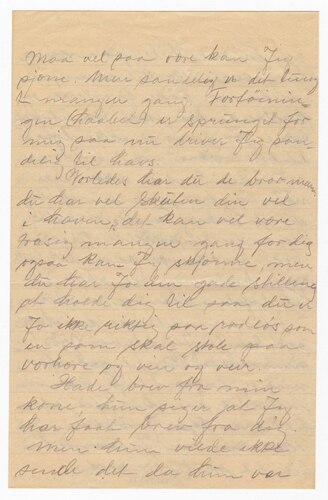 Maa vel saa være kan Jeg
sjøme. Men sandelig er det tung
mangen gang. Fortøinin-
gen (haabet) er sprunget for
mig saa nu driver Jeg san-
delig til havs.
Vorledes har du de bror
du har vel din vel
i haven, det kan vel være
trasig mangen gang for dig
ogsaa kan Jeg skjønne, men
du har Jo din gode stilling
at holde dig til saa du er
Jo ikke riktig saa rodløs som
en som skal stole paa
vorhere og ven og veir.
Hade brev fra min
kone, hun siger at Jeg
har faat brev fra dig.
Men hun vilde ikke
sende det da hun var